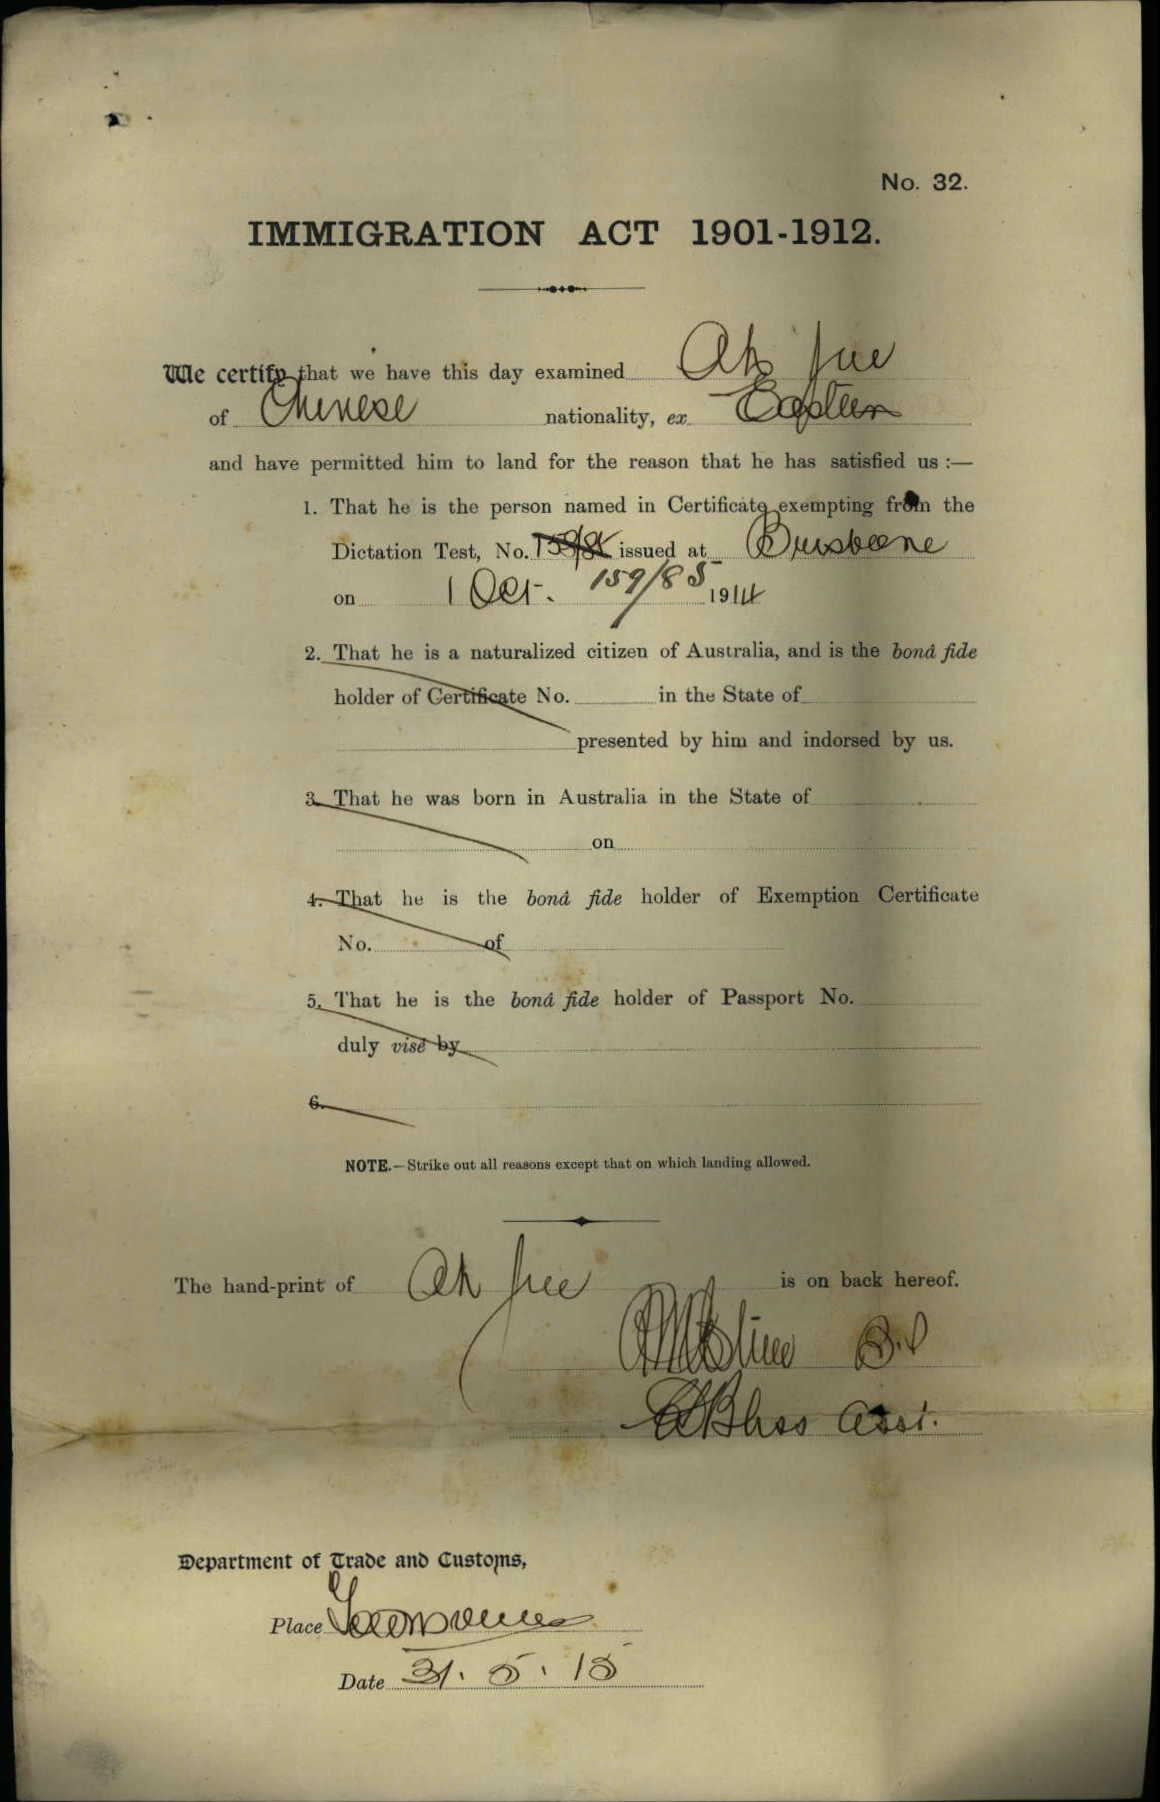 No. 32.
IMMIGRATION ACT 1901-1912.
We certify that we have this day examined Ah Jue
of Chinese nationality, ex Eastern
and have permitted him to land for the reason that he has satisfied us :—
1. That he is the person named in Certificate exempting from the
Dictation Test, No. 158/84 issued at Brisbane
on 1 Oct. 159/85 1914
2. That he is a naturalized citizen of Australia, and is the bonâ fide
holder of Certificate No. in the State of
presented by him and indorsed by us.
3. That he was born in Australia in the State of
on
4. That he is the bonâ fide holder of Exemption Certificate
No. of
5. That he is the bonâ fide holder of Passport No.
duly visé by
6.
NOTE.—Strike out all reasons except that on which landing allowed.
The hand-print of Ah Jue is on back hereof.
Bliss Assi.
Department of Trade and Customs,
Place
Date 31. 5. 15